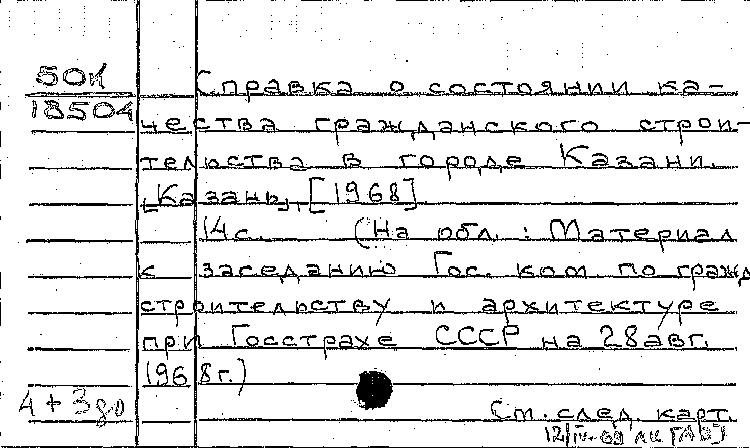 50к
18504
Справка о состоянии ка-
чества гражданского строи-
тельства в городе Казани.
[Казань], [1968]
14с. (На обл.: Материал
к заседанию Гос. ком. по гражд
строительству и архитектуре
при Госстрахе СССР на 28 авг.
1968г.)
4 + 3
См. след. карт.
12/IV-69